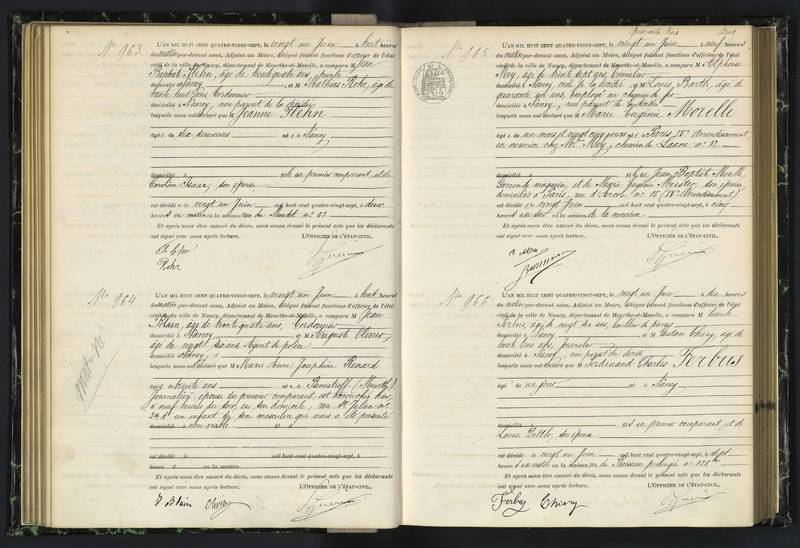 No 963
L'AN MIL HUIT CENT QUATRE-VINGT-SEPT, le vingt un Juin à huit heures
du matin par-devant nous, Adjoint au Maire, délégué faisant fonctions d'officier de l'état
civil de la ville de Nancy, département de Meurthe-et-Moselle, a comparu M Jean
Baptiste Flehn, âgé de trente quatre ans,
domicilié à Nancy et M Mathias Rohr, âgé de
trente huit ans Cordonnier
domicilié à Nancy, non parent de la décédée
lesquels nous ont déclaré que Jeanne Flehn
agée de six semaines née à Nancy
domicilié à fille du premier comparant et de
Caroline Isaac, son épouse
est décédée le vingt un Juin mil huit cent quatre-vingt-sept, à deux
heures du matin en la maison rue du no 63.
Et après nous être assuré du décès, nous avons dressé le présent acte que les déclarants
ont signé avec nous après lecture. L'OFFICIER DE L'ÉTAT-CIVIL,
Rohr
No 964
L'AN MIL HUIT CENT QUATRE-VINGT-SEPT, le vingt un Juin à huit heures
du matin par-devant nous, Adjoint au Maire, délégué faisant fonctions d'officier de l'état
civil de la ville de Nancy, département de Meurthe-et-Moselle, a comparu M Jean
Blain, âgé de trente quatre ans, Cordonnier
domicilié à Nancy et M Auguste Olivier,
âgé de vingt six ans Agent de police
domicilié à Nancy,
lesquels nous ont déclaré que Marie Anne Joséphine Renard
agée de trente ans née à (Meurthe)
Journalière, épouse du premier comparant, est accouchée hier,
à neuf heures du soir, en son domicile, rue St Julien no
24, d'un enfant du sexe masculin que nous a été présenté
domicilié à non viable.
est décédé le mil huit cent quatre-vingt-sept, à
heure d en la maison
Et après nous être assuré du décès, nous avons dressé le présent acte que les déclarants
ont signé avec nous après lecture. L'OFFICIER DE L'ÉTAT-CIVIL,
J Blain Olivier
No 965
L'AN MIL HUIT CENT QUATRE-VINGT-SEPT, le vingt un Juin à neuf heures
du matin par-devant nous, Adjoint au Maire, délégué faisant fonctions d'officier de l'état
civil de la ville de Nancy, département de Meurthe-et-Moselle, a comparu M Alphonse
Noy, âgé de trente sept ans, Tonnelier
domicilié à Nancy et M Louis Barth, âgé de
quarante ans, employé au chemin de fer
domicilié à Nancy, non parent de la décédée
lesquels nous ont déclaré que Marie Eugénie Morelle
agée d'un mois et vingt cinq jours née à Paris, IVe Arrondissement
en nourrice chez Mr Noy, chemin de Laxou no 12
domicilié à fille de Jean Baptiste Morelle,
Garçon de magasin, et de Marie Eugénie Meister, son épouse
domiciliés à Paris, rue d'Arcole no 15 (IVe Arrondissement)
est décédée le vingt Juin mil huit cent quatre-vingt-sept, à cinq
heures du soir en la maison de la nourrice
Et après nous être assuré du décès, nous avons dressé le présent acte que les déclarants
ont signé avec nous après lecture. L'OFFICIER DE L'ÉTAT-CIVIL,
No 966
L'AN MIL HUIT CENT QUATRE-VINGT-SEPT, le vingt un Juin à dix heures
du matin par-devant nous, Adjoint au Maire, délégué faisant fonctions d'officier de l'état
civil de la ville de Nancy, département de Meurthe-et-Moselle, a comparu M Camille
Ferbus, âgé de vingt six ans, tailleur de pierres
domicilié à Nancy et M Gustave Thiéry, âgé de
trente deux ans, journalier
domicilié à Nancy, non parent du décédé
lesquels nous ont déclaré que Ferdinand Charles Ferbus
agé d'un jour né à Nancy
domicilié à fils du premier comparant, et de
Louise son épouse
est décédé le vingt un Juin mil huit cent quatre-vingt-sept, à sept
heures du matin en la maison rue de prolongée no 126
Et après nous être assuré du décès, nous avons dressé le présent acte que les déclarants
ont signé avec nous après lecture. L'OFFICIER DE L'ÉTAT-CIVIL,
Ferbus Thiéry